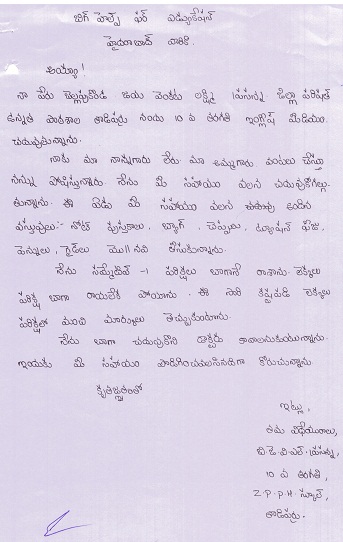 బిగ్ హెల్ప్ ఫర్ ఎడ్యుకేషన్
హైదరాబాద్ వారికి.
అయ్యా!
నా పేరు చెల్లపురెడి జయ వెంకట లక్ష్మి ప్రసన్న జిల్లా పరిషత్
ఉన్నత పాఠశాల తాడిపర్రు నందు 10 వ తరగతి ఇంగ్లీష్ మీడియం
చదువుతున్నాను.
నాకు మా నాన్నగారు లేరు. మా అమ్మగారు వంటలు చేస్తూ
నన్ను పోషిస్తున్నారు. నేను మీ సహాయం వలన చదువుకోగల్గు
తున్నాను. ఈ ఏడు మీ సహాయం వలన పొందిన
వస్తువులు:- నోట్ పుస్తకాలు, బ్యాగ్, చెప్పులు, ట్యూషన్ ఫీజు,
పెన్నులు, గైడ్‌లు మొ॥నవి తీసుకున్నాను.
నేను సమ్మేటివ్ -1 పరీక్షలు బాగానే రాశాను. లెక్కలు
పరీక్ష బాగా రాయలేక పోయాను. ఈ సారి కష్టపడి లెక్కలు
పరీక్షలో మంచి మార్కులు తెచ్చుకుంటాను.
నేను బాగా చదువుకొని డాక్టర్ కావాలనుకుంటున్నాను.
ఇందుకు మీ సహాయం పొడిగించవలసినదిగా కోరుచున్నాను
కృతజ్ఞతలతో
ఇట్లు,
తమ విధేయురాలు,
చి.జె.వి.ఎల్.ప్రసన్న,
10 వ తరగతి,
Z.P.P.H.స్కూల్,
తాడిపర్రు.